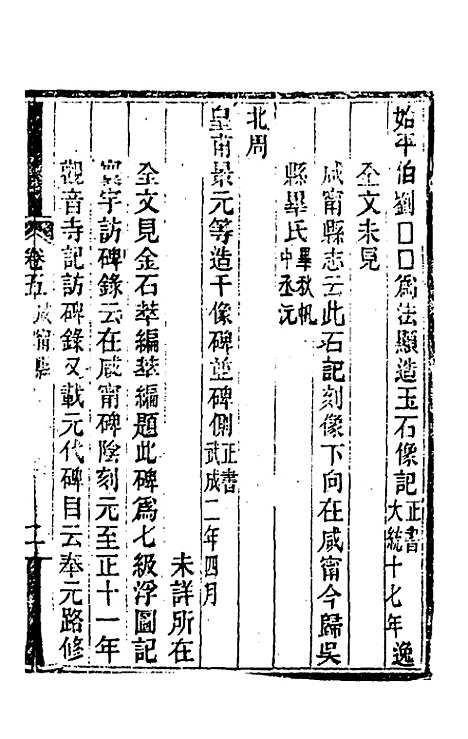 始平伯劉□□爲法顯造玉石像記正書大統十七年　逸
全文未見
咸甯縣志云此石記刻像下向在咸甯今歸吳
縣畢氏畢秋帆中丞沅
北周
皇甫景元等造千像碑並碑側正書武成二年四月
未詳所在
全文見金石萃編萃編題此碑爲七級浮圖記
寰宇訪碑錄云在咸甯碑陰刻元至正十一年
觀音寺記訪碑錄又載元代碑目云奉元路修
卷五 咸甯縣 二